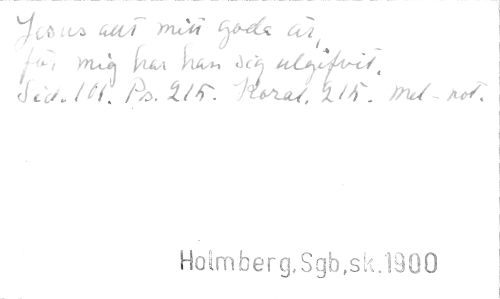 Jesus allt mitt goda är,
för mig har han sig utgifvit.
Sid. 101. Ps. 215. Koral. 215. Mel-not.
Holmberg, Sgb, sk. 1900